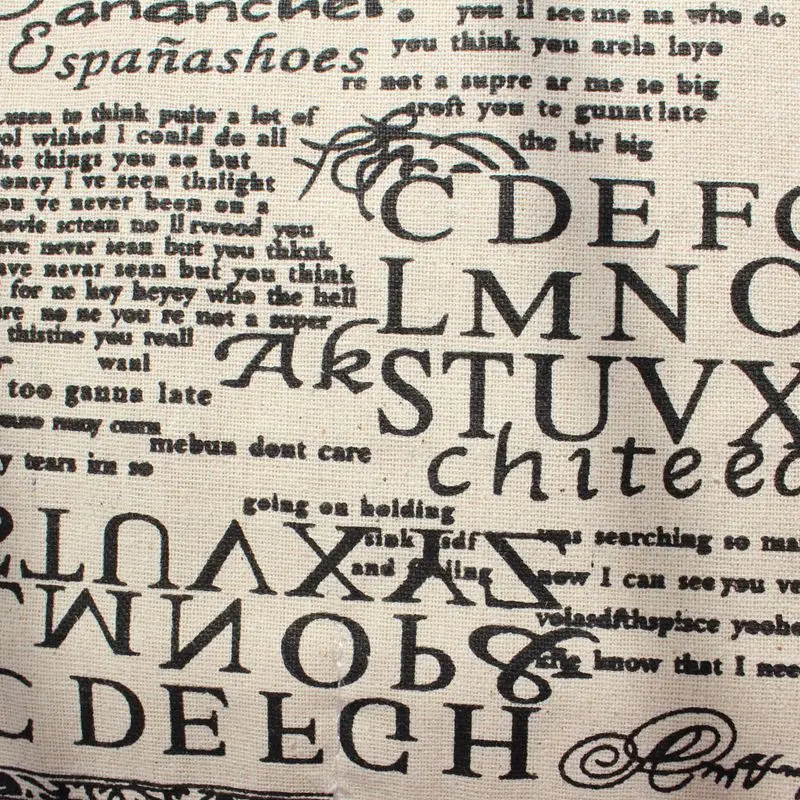 you ll see me na who do
Españashoes
you think you arela laye
re not a supre ar me so big
groft you te gunnt late
the bir big
think puite a lot of
ol wished I could do all
he things you ae but
oney I ve seen thslight
ou ve never been on a
ovie sctean no ll rwood you
ave nevar sean but you thknk
ave nevar sean but you think
for ne hey heyey who the hell
are no ne you re not a super
thistine you reall
wanl
too ganna late
C D E F
L M N O
Ak
S T U V X
mebun dont care
y tears im so
chitee
going on holding
sink sdf
and
was searching so
now I can see you ve
volasdfthspisce
know that I nee
T U V X Y Z
M N O P
C D E F G H